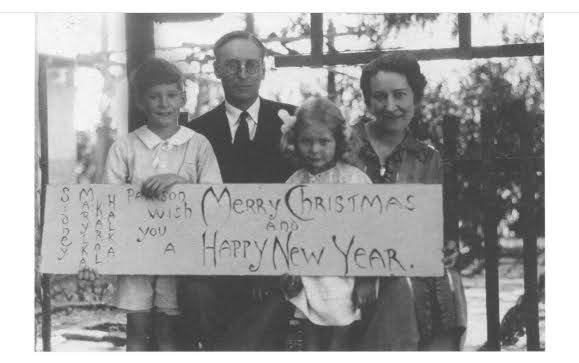 SIDNEY
MARYLKA
KAROL
HALKA
WISH
YOU
A
MERRY CHRISTMAS
AND
HAPPY NEW YEAR.